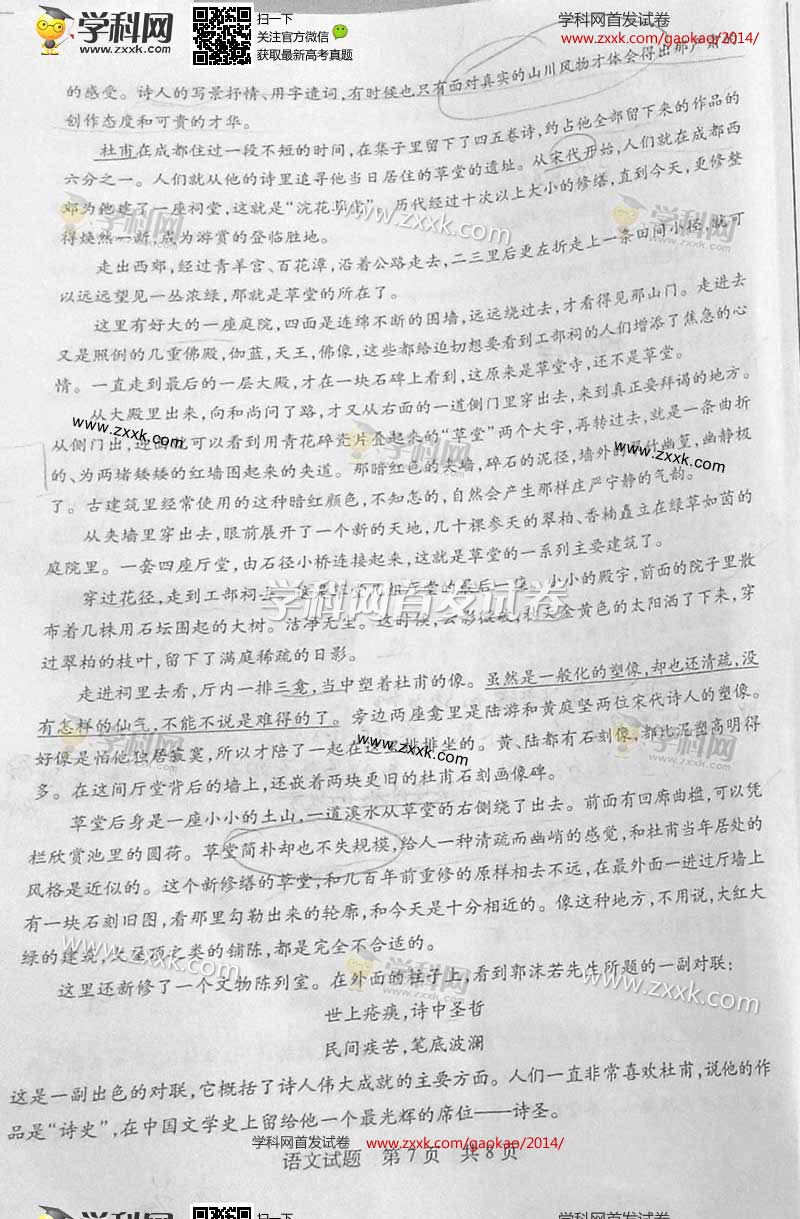 学科网
www.zxxk.com
扫一下
关注官方微信
获取最新高考真题
学科网首发试卷
www.zxxk.com/gaokao/2014/
的感受。诗人的写景抒情、用字遣词,有时候也只有面对真实的山川风物才体会得出那
创作态度和可贵的才华。
杜甫在成都住过一段不短的时间,在集子里留下了四五卷诗,约占他全部留下来的作品的
六分之一。人们就从他的诗里追寻他当日居住的草堂的遗址。从宋代开始,人们就在成都西
郊为他建了一座祠堂,这就是“浣花草堂”。历代经过十次以上大小的修缮,直到今天,更修整
得焕然一新,成为游赏的登临胜地。
走出西郊,经过青羊宫、百花潭,沿着公路走去,二三里后更左折走上一条田间小径,就可
以远远望见一丛浓绿,那就是草堂的所在了。
这里有好大的一座庭院,四面是连绵不断的围墙,远远绕过去,才看得见那山门。走进去
又是照例的几重佛殿,伽蓝,天王,佛像,这些都给迫切想要看到工部祠的人们增添了焦急的心
情。一直走到最后的一层大殿,才在一块石碑上看到,这原来是草堂寺,还不是草堂。
从大殿里出来,向和尚问了路,才又从右面的一道侧门里穿出去,来到真正要拜谒的地方。
从侧门出,迎面就可以看到用青花碎瓷片叠起来的“草堂”两个大字,再转过去,就是一条曲折
的、为两堵矮矮的红墙围起来的夹道。那暗红色的夹墙,碎石的泥径,墙外的 竹幽篁,幽静极
了。古建筑里经常使用的这种暗红颜色,不知怎的,自然会产生那样庄严宁静的气韵。
从夹墙里穿出去,眼前展开了一个新的天地,几十棵参天的翠柏、香楠矗立在绿草如茵的
庭院里。一套四座厅堂,由石径小桥连接起来,这就是草堂的一系列主要建筑了。
穿过花径,走到工部祠去,这是 草堂的最后一座。小小的殿宇,前面的院子里散
布着几株用石坛围起的大树。洁净无尘。这时候,云影 金黄色的太阳洒了下来,穿
过翠柏的枝叶,留下了满庭稀疏的日影。
走进祠里去看,厅内一排三龛,当中塑着杜甫的像。虽然是一般化的塑像,却也还清疏,没
有怎样的仙气,不能不说是难得的了。旁边两座龛里是陆游和黄庭坚两位宋代诗人的塑像。
好像是怕他独居寂寞,所以才陪了一起在这里排排坐的。黄、陆都有石刻像,都比泥塑高明得
多。在这间厅堂背后的墙上,还嵌着两块更旧的杜甫石刻画像碑。
草堂后身是一座小小的土山,一道溪水从草堂的右侧绕了出去。前面有回廊曲槛,可以凭
栏欣赏池里的圆荷。草堂简朴却也不失规模,给人一种清疏而幽峭的感觉,和杜甫当年居处的
风格是近似的。这个新修缮的草堂,和几百年前重修的原样相去不远,在最外面一进过厅墙上
有一块石刻旧图,看那里勾勒出来的轮廓,和今天是十分相近的。像这种地方,不用说,大红大
绿的建筑,大屋顶之类的铺陈,都是完全不合适的。
这里还新修了一个文物陈列室。在外面的柱子上,看到郭沫若先生所题的一副对联:
世上疮痍,诗中圣哲
民间疾苦,笔底波澜
这是一副出色的对联,它概括了诗人伟大成就的主要方面。人们一直非常喜欢杜甫,说他的作
品是“诗史”,在中国文学史上留给他一个最光辉的席位——诗圣。
学科网首发试卷
www.zxxk.com/gaokao/2014/
语文试题 第7页 共8页
学科网
扫一下
学科网首发试卷